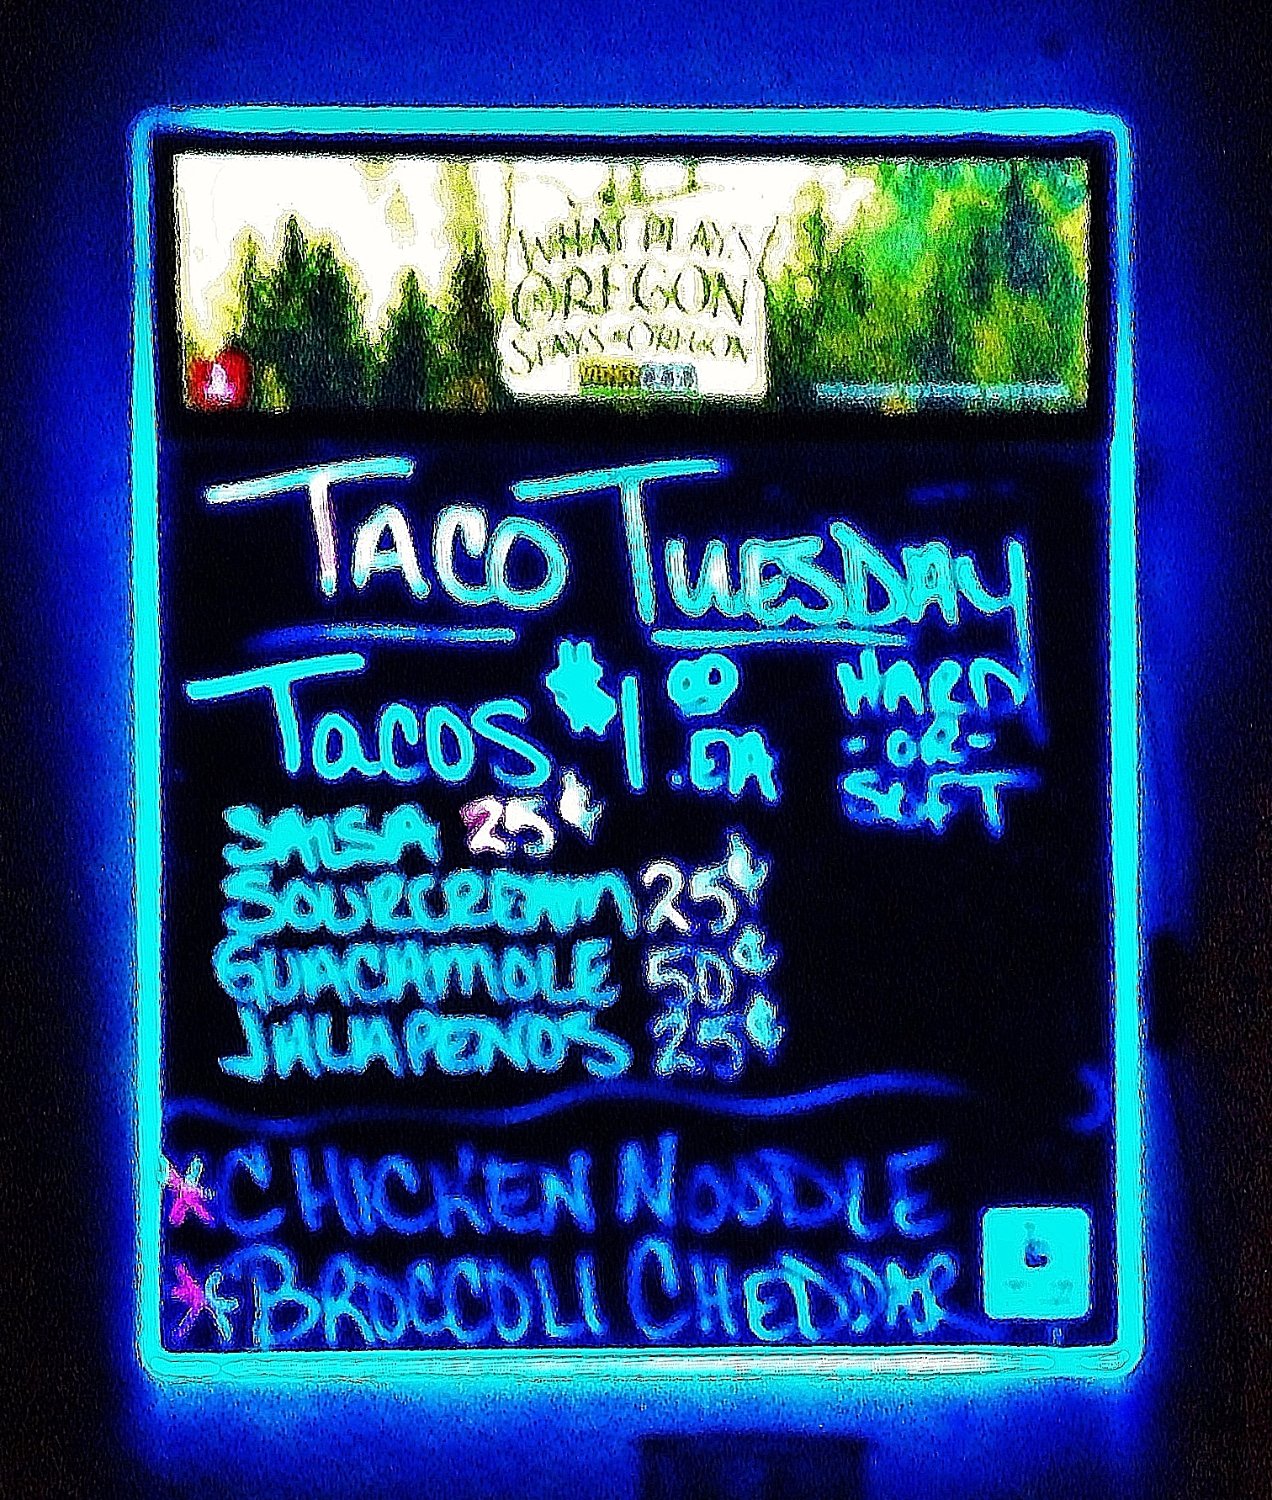 WHAT PLAYS
OREGON
STAYS in OREGON
TACO TUESDAY
TACOS $1.00 EA
HARD
-OR-
SOFT
SALSA 25¢
SOURCREAM 25¢
GUACAMOLE 50¢
JALAPENOS 25¢
* CHICKEN NOODLE
* BROCCOLI CHEDDAR